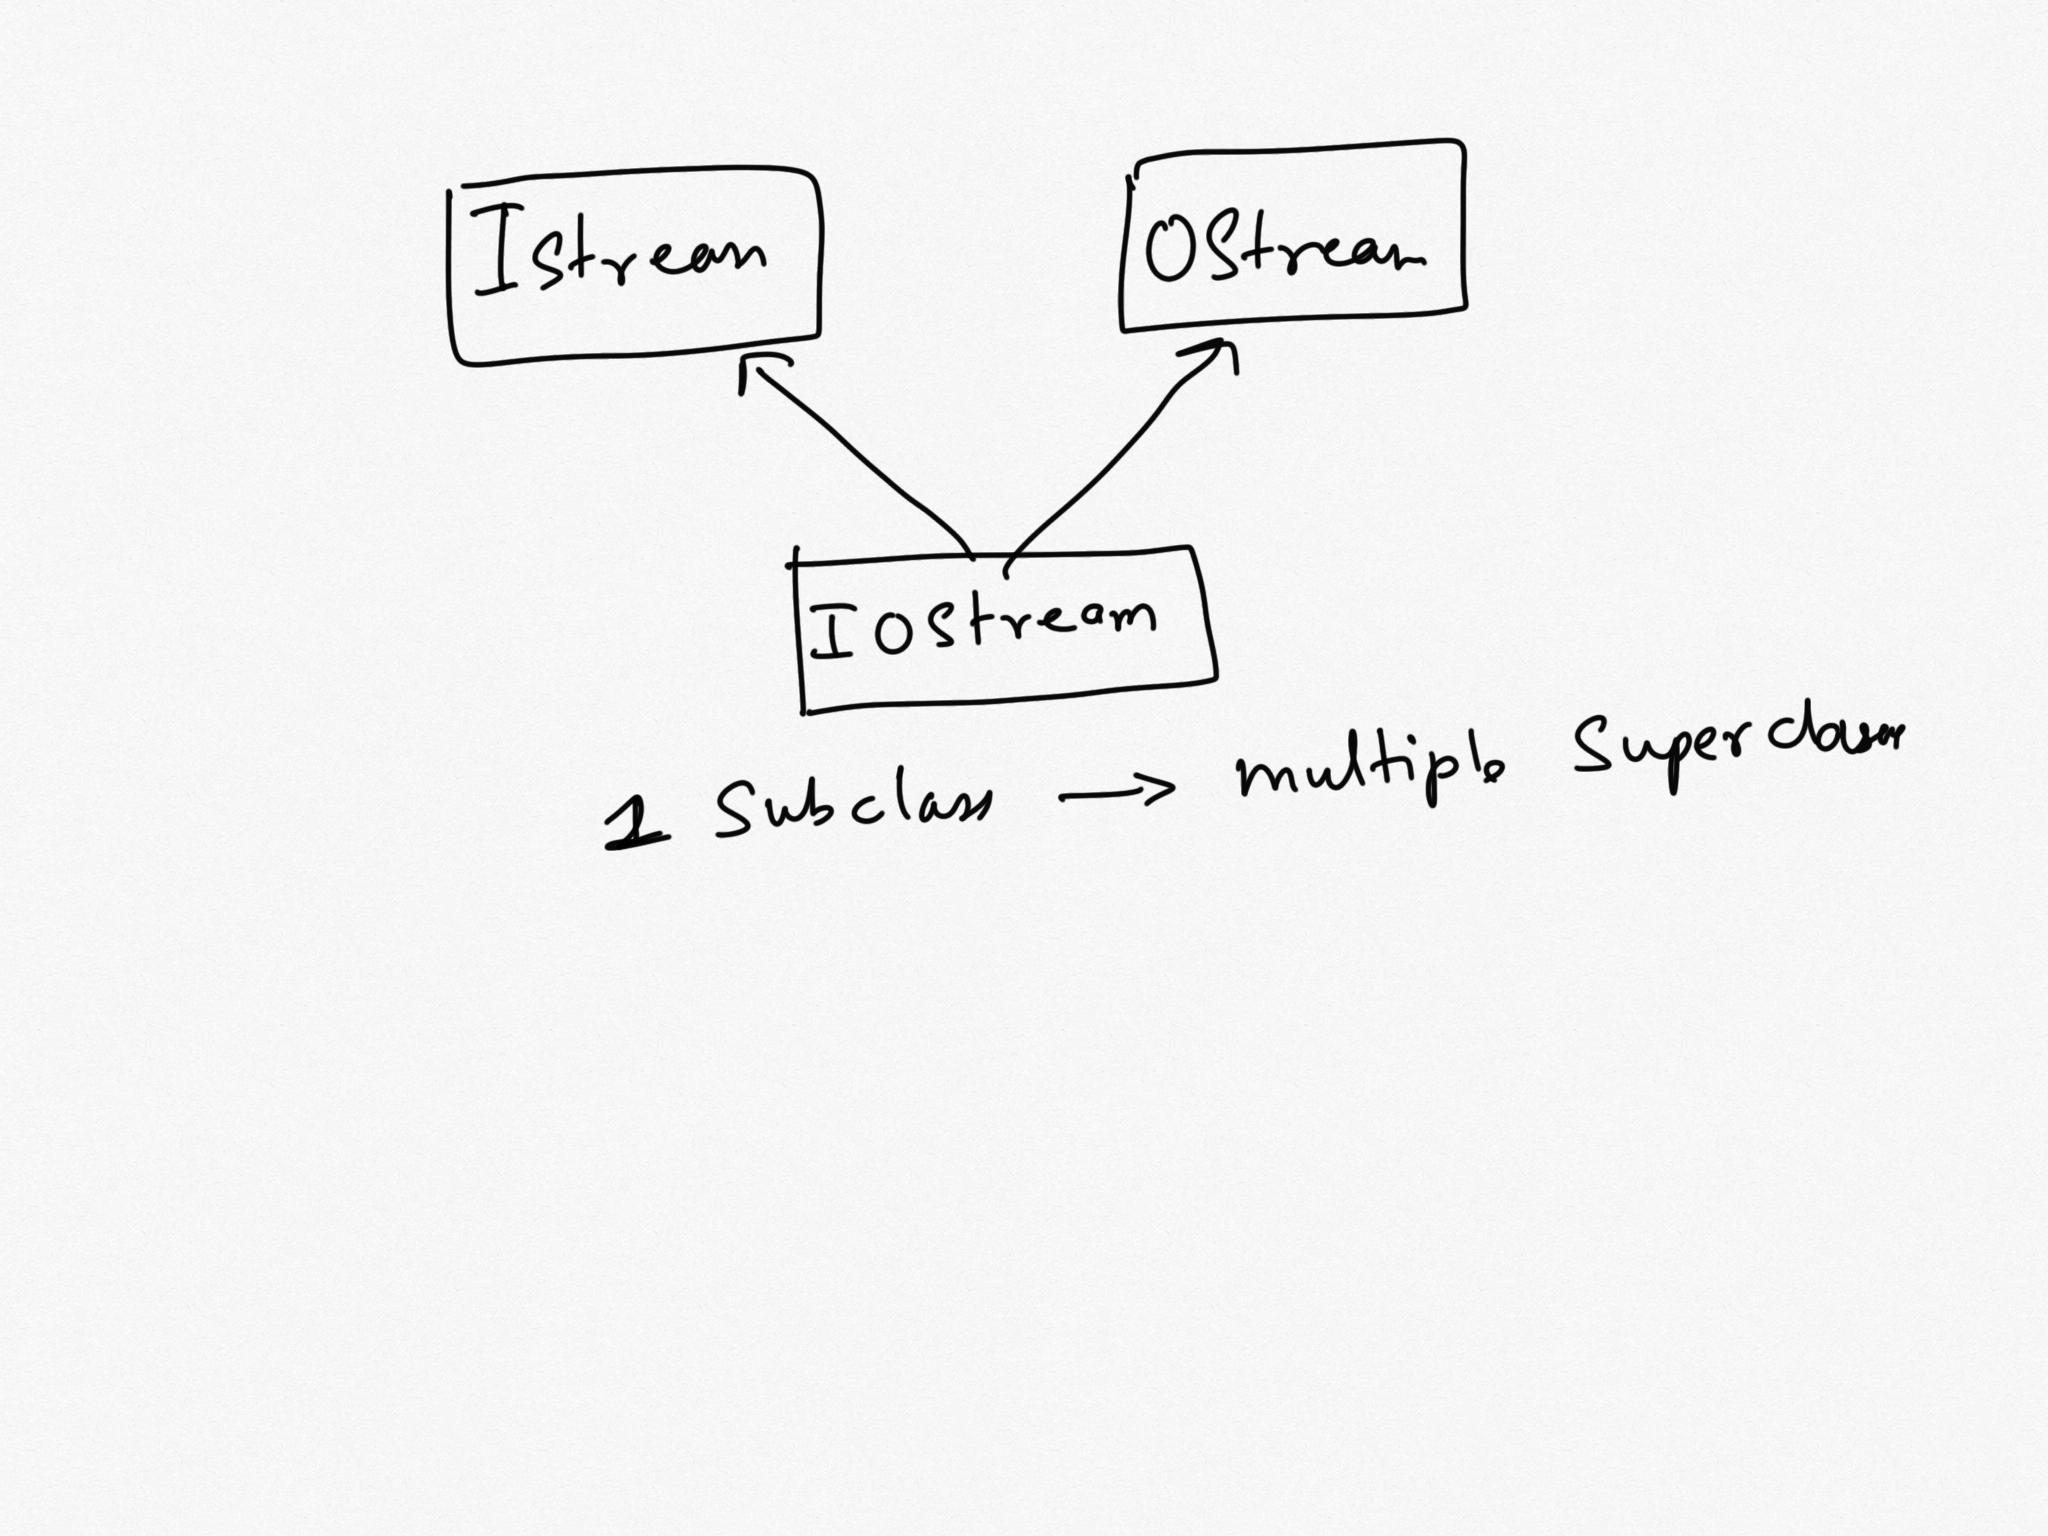 Istream
OStream
IOStream
1 Subclass → multiple Superclasses